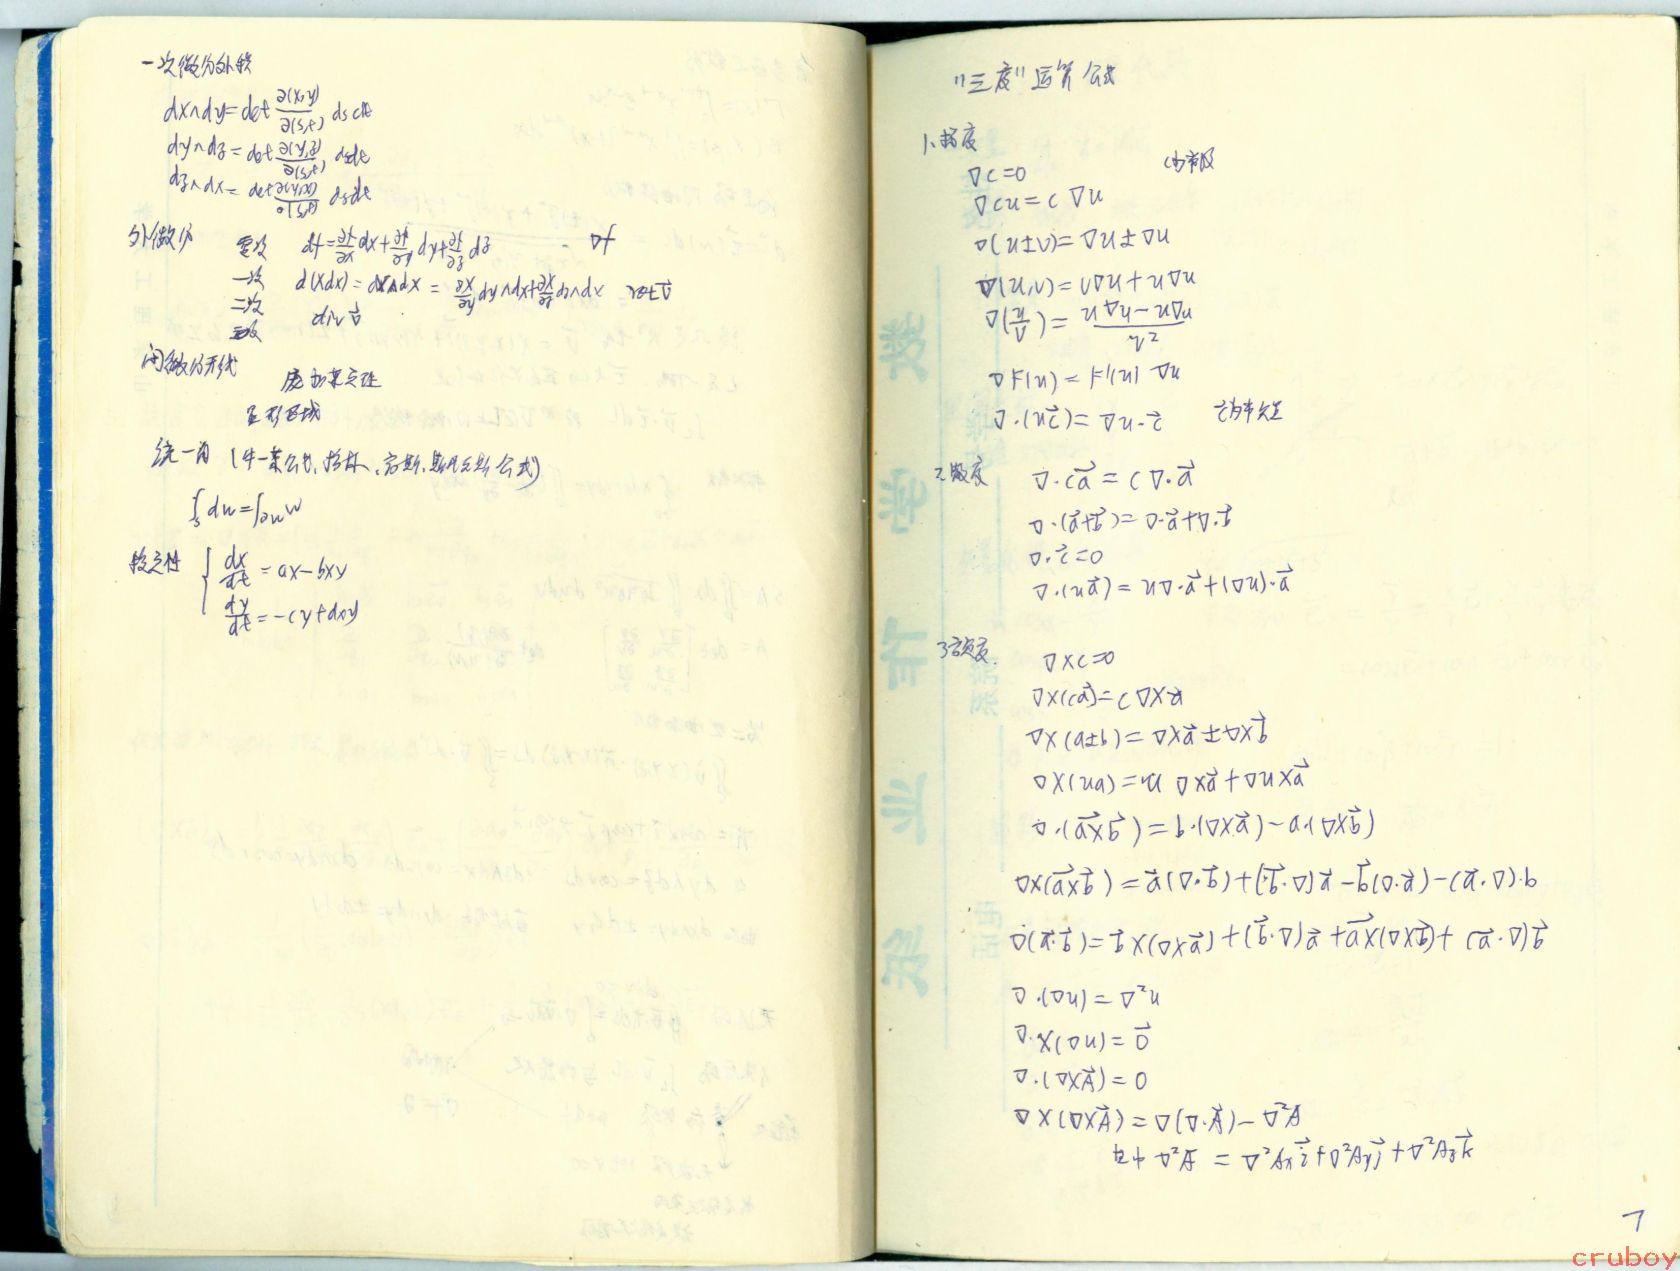 一次微分外积
dx∧dy=det ∂(x,y)/∂(s,t) dsdt
dy∧dz=det ∂(y,z)/∂(s,t) dsdt
dz∧dx=det ∂(z,x)/∂(s,t) dsdt
外微分 零次 df=∂f/∂x dx+∂f/∂y dy+∂f/∂z dz ∇f
一次 d(Xdx)=dX∧dx = ∂X/∂y dy∧dx+∂X/∂z dz∧dx rot v⃗
二次 div v⃗
三次
闭微分形式
庞加莱定理
星形区域
统一为 (牛-莱公式、格林、高斯、斯托克斯公式)
∫ dw=∫ w
稳定性 { dx/dt = ax-bxy
dy/dt =-cy+dxy
"三度" 运算公式
1.梯度
∇c=0 c为常数
∇cu=c∇u
∇(u±v)=∇u±∇u
∇(u,v)=v∇u+u∇u
∇(u/v)= u∇u-u∇u / v²
∇F(u)=F'(u) ∇u
∇·(uc⃗)=∇u·c⃗ c⃗为常矢
2.散度 ∇·ca⃗=c∇·a⃗
∇·(a⃗+b⃗)=∇·a⃗+∇·b⃗
∇·c⃗=0
∇·(ua⃗)=u∇·a⃗+(∇u)·a⃗
3.旋度 ∇×c=0
∇×(ca⃗)=c∇×a⃗
∇×(a±b)=∇×a⃗±∇×b⃗
∇×(ua)=u ∇×a⃗+∇u×a⃗
∇·(a⃗×b⃗)=b·(∇×a⃗)-a·(∇×b⃗)
∇×(a⃗×b⃗)=a⃗(∇·b⃗)+(b⃗·∇)a⃗-b⃗(∇·a⃗)-(a⃗·∇)·b
∇(a⃗·b⃗)=b⃗×(∇×a⃗)+(b⃗·∇)a⃗+a⃗×(∇×b⃗)+(a⃗·∇)b⃗
∇·(∇u)=∇²u
∇·×(∇u)=0⃗
∇·(∇×A⃗)=0
∇×(∇×A⃗)=∇(∇·A⃗)-∇²A⃗
其中 ∇²A⃗ = ∇²Axi⃗+∇²Ayj⃗+∇²Azk⃗
7
cruboy